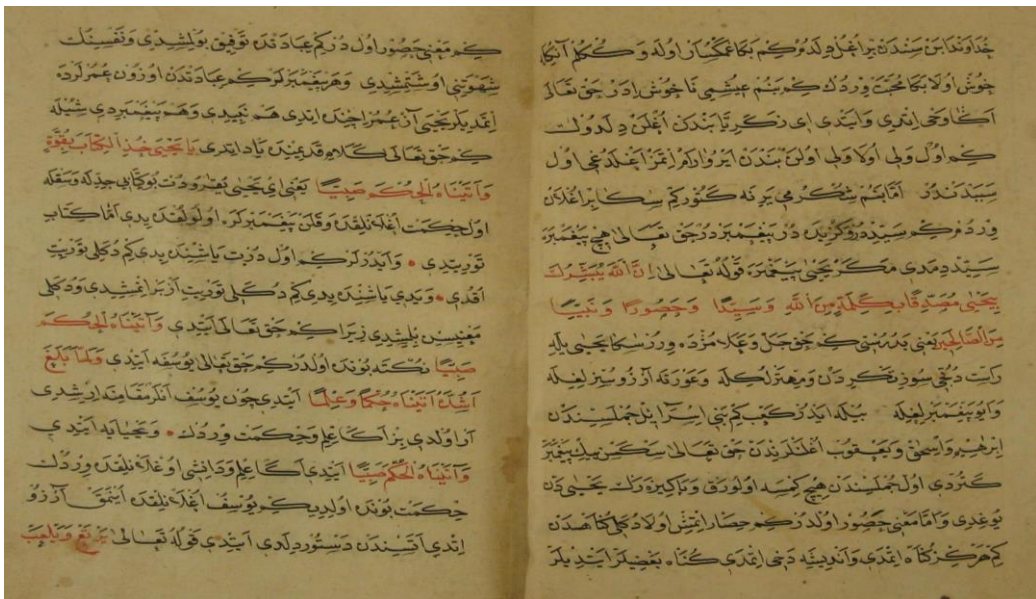 خداوندا بن سندن بر اغل دلدوم كم بكا غمكسار اوله و كنكلم آنكله
خوش اولا بكا محبت وردك كم بنم عيشمى نا خوش ادر حق تعالى
اكا وحى اندى و ايتدى اى زكريا بندن اغلن دلدوك
كم اول ولى اولا ولى اولن بندن ايرو ارام اتمز اغلدوغى اول
سببدندر اما بنم شكرمى ير نه كتور كم سكا بر اغلان
وردم كم سيددر و كزيدر دز پيغمبردر حق تعالى هيچ پيغمبره
سيد دمدى مكر يحيى پيغمبره قوله تعالى ان الله يبشرك
بيحيى مصدقا بكلمة من الله وسيدا وحصورا ونبيا
من الصالحين يعنى بدرستى كم حق جل وعلا مژده ورر سكا يحيى يله
راست دغى سوز تكردن و مهترلكله و عورته آرزوسيزلغله
و ايو پيغمبرلغله بيله ايدر كعب كم بنى اسرايل جملسندن
ابرهيم و اسحق و يعقوب اغلنلرندن حق تعالى سكسن بيك پيغمبر
كتردى اول جملسندن هيچ كمسه اولورق و پاكيزه رك يحيى دن
يوغدى و اما معنى حصور اولدر كم حصار اتمش اولا دكلى كناهدن
كم هركز كناه اتمدى و انديشه دخى اتمدى كناه بعضيلر ايتديلر
كم معنى حصور اول در كم عبادتدن توفيق بولمشدى و نفسنك
شهوتنى اوشتمشدى و هر پيغمبرلر كم عبادتدن اوزون عمرلرده
اتمديلر يحيى آز عمر اچنده اتدى هم نبيدى و هم پيغمبردى شيله
كم حق تعالى كلام قديمنده ياد ايتدى يا يحيى خذ الكتاب بقوة
وآتيناه الحكم صبيا يعنى اى يحيى يقرودت بو كتابى جدله و سقله
اول حكمت اغلانلقدن و قلن پيغمبرلره اولولغدن يدى اما كتاب
توريتدى و ايدرلر كم اول درت ياشنده يدى كم دكلى توريت
اقدى و يدى ياشنده يدى كم دكلى توريت ازبر اتمشدى و دكلى
معنيسين بلمشدى زيرا كم حق تعالى ايتدى وآتيناه الحكم
صبيا نكته بوندن اولدر كم حق تعالى يوسفه ايتدى ولما بلغ
اشده آتيناه حكما وعلما ايتدى چون يوسف انلر مقامنه ارشدى
آر اولدى بز اكا علم و حكمت وردك و يحيايه ايتدى
وآتيناه الحكم صبيا ايتدى اكا علم و دانشى اوغلانلقدن وردك
حكمت بوندن اولديدى كم يوسف اغلانلقدن اينمق آرزو
اتدى آتسندن دستور دلدى ايتدى قوله تعالى يرتع ويلعب